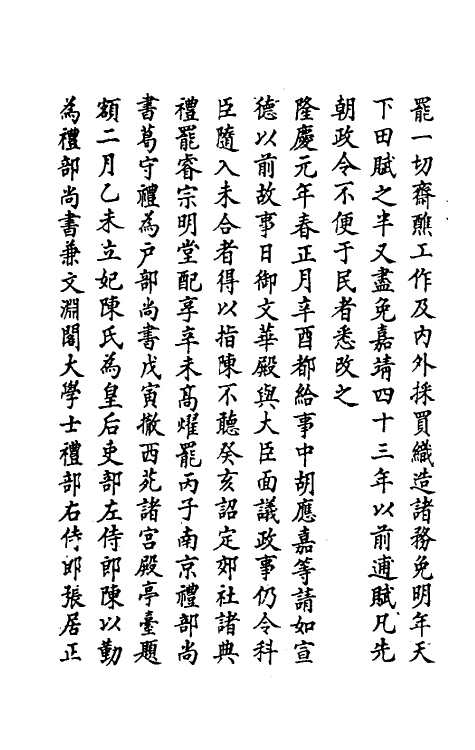 罷一切齋醮工作及内外採買織造諸務免明年天
下田賦之半又盡免嘉靖四十三年以前逋賦凡先
朝政令不便于民者悉改之
隆慶元年春正月辛酉都給事中胡應嘉等請如宣
德以前故事日御文華殿與大臣面議政事仍令科
臣隨入未合者得以指陳不聽癸亥詔定郊社諸典
禮罷睿宗明堂配享辛未髙燿罷丙子南京禮部尚
書葛守禮為戸部尚書戊寅撤西苑諸宮殿亭臺題
額二月乙未立妃陳氏為皇后吏部左侍郎陳以勤
為禮部尚書兼文淵閣大學士禮部右侍郎張居正